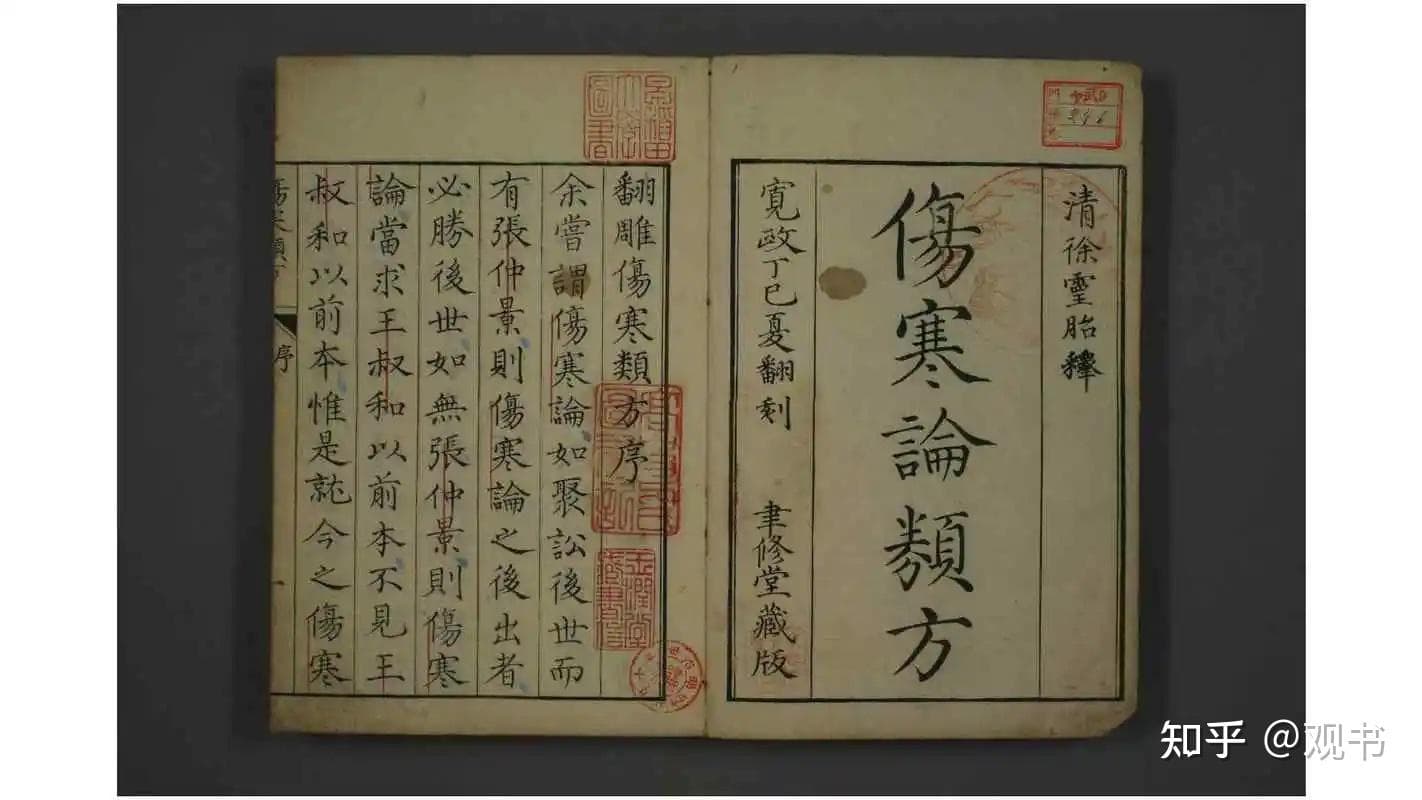 清徐靈胎釋
傷寒論類方
寬政丁巳夏翻刻 聿修堂藏版
翻雕傷寒類方序
余嘗謂傷寒論如聚訟後世而
有張仲景則傷寒論之後出者
必勝後世如無張仲景則傷寒
論當求王叔和以前本不見王
叔和以前本惟是就今之傷寒
序
知乎 @观书